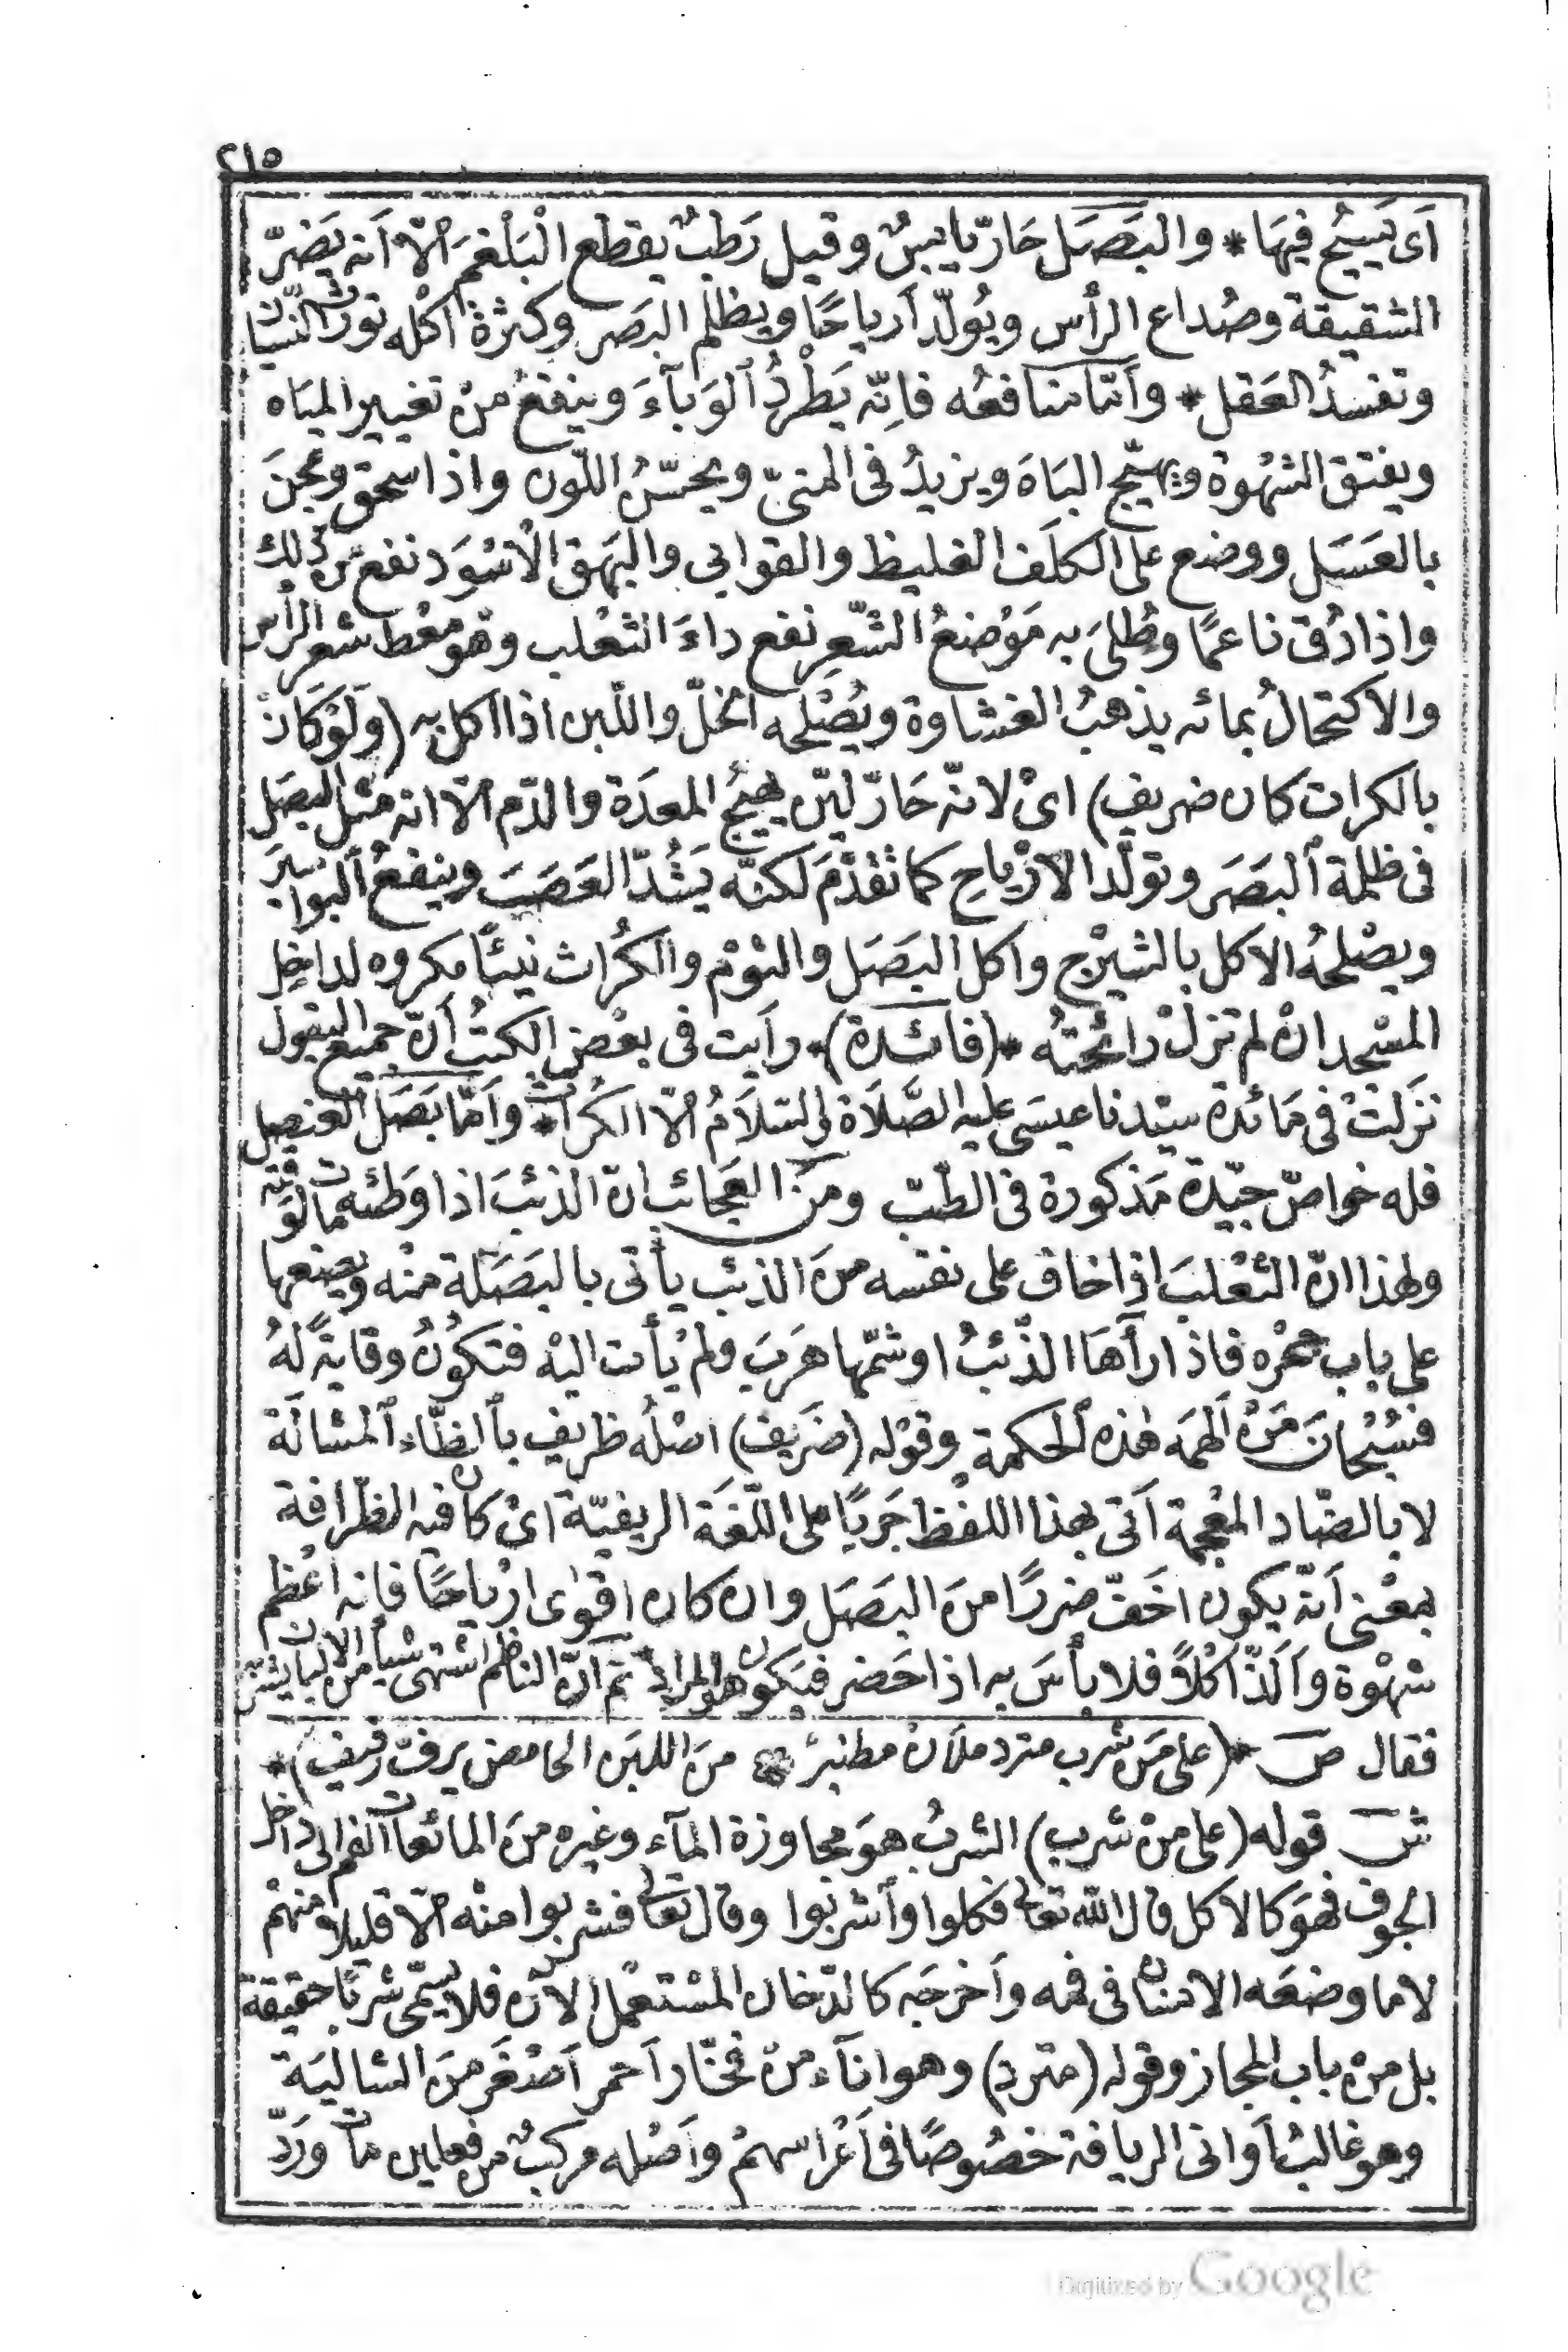 ٢١٥
أَى يَسِيحُ فِيهَا * والبَصَل حَارّ يابسٌ وقيل رَطبٌ يقطع الْبَلْغَمَ الّا اَنه يَضرّ
الشقيقة وصُداع الرأس ويُولّد اَرياحًا ويظلم البصَر وكثرةُ اكْله تورث النسيان
وتفسدُ العَقل * وأمّا منافعُه فاِنّه يَطْردُ اَلوَبآءَ وينفعُ منْ تغيير الميَاه
ويفتق الشهْوة ويهيّج البَاهَ ويزيدُ فى المنىّ ويحسّنُ اللّون واذا سحق وعُجنَ
بالعَسَل ووضع على الكلَف الغليظ والقوابى والبَهق الاْسْوَد نفع من ذلك
واذا دُق ناعمًا وطُلىَ به مَوْضعُ الشّعر نفع داءَ الثعْلب وهو مَعْط شعر الرأس
والاكتحالُ بمائه يذهبُ الغشاوة ويُصْلحه الخلّ واللّبن اذا اكل به (ولَوْ كَانْ
بالكرات كان ضريف) اىْ لانّه حَارّ ليّن يهيّجُ المعدَة والدّم الّا انه مثْل البصَل
فى ظلمة اَلبصَر وتولّد الاَرْياح كما تقدّمَ لكنّه يَشُدّ العَصَبَ وينفعُ اَلبواسيرَ
ويصْلحهُ الاكل بالشيرْج واكل البصَل والثوْم والكُرّاث نيئاً مكروه لداخل
المسْجد انْ لم تزلْ رائحتهُ *(فائدة)* رأيت فى بعْض الكتبُ أنّ جميع البقول
نزَلتْ فى مَائدة سيّدنا عيسَى عليه الصَّلاَة والسّلاَمُ الّا الكرّاث * وأمّا بَصَل العنصل
فله خواصّ جيّدة مَذكورة فى الطّبّ ومنَ العَجائب انّ الذئبَ اذا وَطئه مات لوقته
ولهذا انّ الثعْلبَ اذا خاف على نفسه منَ الذئب يأتى بالبصَلة منْه ويضعها
على باب جحْره فاذا رآهَا الذّئبُ او شمّها هَربَ ولمْ يأْت اليْه فتكوُنُ وقايةً لهُ
فسُبْحانَ مَنْ اَلهمَه هٰذه اَلحكمة وقوْله (ضَريف) اصْلُه ظريف بالظّاء اَلمشالَة
لا بالضّاد المعْجمة أتى بهذا اللفظ جَريًا على اللّغَة الريفيّة اىْ كان فيه الظّرافة
بمعْنى اَنّه يكون اخَفّ ضررًا منَ البصَل وان كان اقوٰى ارْياحًا فانه اعْظم
شهْوة واَلَذّ اكْلاً فلا بأسَ به اذا حَضر فيَكون هوَ المراد * ثم انّ الناظم اشتهى شيأ من الالبان يشربه
فقال ص *(على مَنْ شرب مترد ملاَن مطنبرْ * منَ اللبَن الحامض يرفّ رفيف)*
ش قوله (على منْ شرب) الشربُ هوَ مجاوزة المآء وغيره منَ المائعات الفم الى داخل
الجوف فهوَ كالاكل قال اللّه تعالى فكلوا واَشربوا وقال تعالى فشربوا منْه الّا قليلاً منهمْ
لا ما وضعَه الانسان فى فمه وأخرجَه كالدّخان المسْتعمل الاَن فلا يسمّى شربًا حقيقة
بل منْ باب المجاز وقوله (مترد) وهو انآء منْ فخّار اَحمر اَصْغَر منَ الشاليَة
وهو غالبُ اَوانى الريافة خصُوصًا فى أعْراسهمْ واَصْله مركبٌ من فعلين مات ورَدّ
Digitized by Google